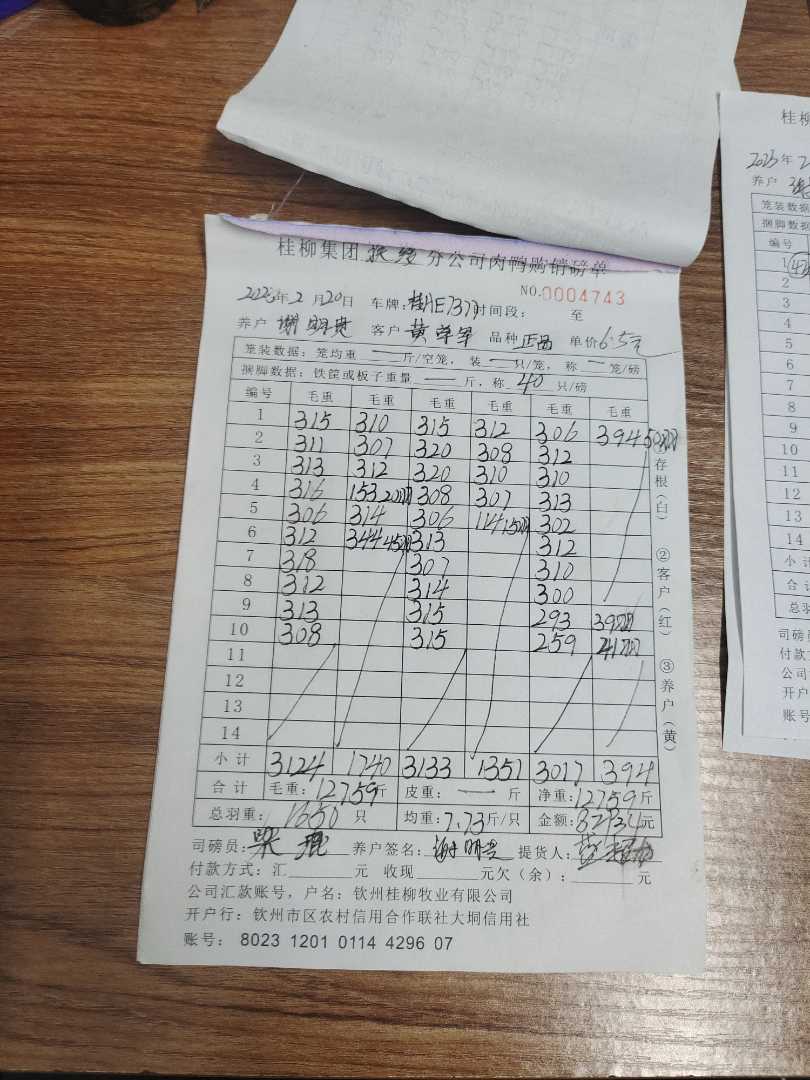 桂柳集团 分公司肉鸭购销磅单
NO.0004743
2025年2月20日 车牌: 时间段: 至
养户 谢明贵 客户 黄 品种 正品 单价 6.5元
笼装数据: 笼均重 — 斤/空笼, 装 — 只/笼, 称 — 笼/磅
捆脚数据: 铁筐或板子重量 — 斤, 称 40 只/磅
编号 毛重 毛重 毛重 毛重 毛重 毛重
1 315 310 315 312 306 394
2 311 307 320 308 312
3 313 312 320 310 310
4 316 153 308 307 313
5 306 314 306 114 302
6 312 344 313 312
7 318 307 310
8 312 314 300
9 313 315 293
10 308 315 259
11
12
13
14
小计 3124 1740 3133 1351 3017 394
合计 毛重: 12759斤 皮重: — 斤 净重: 12759斤
总羽重: 1650 只 均重: 7.73斤/只 金额: 82934元
司磅员: 养户签名: 谢明贵 提货人:
付款方式: 汇 元 收现 元欠(余): 元
公司汇款账号, 户名: 钦州桂柳牧业有限公司
开户行: 钦州市区农村信用合作联社大垌信用社
账号: 8023 1201 0114 4296 07
①存根(白) ②客户(红) ③养户(黄)
桂柳
2025年2
养户
笼装数据
捆脚数据
编号
1
2
3
4
5
6
7
8
9
10
11
12
13
14
小计
合计
总羽
司磅员
付款方
公司
开户
账号